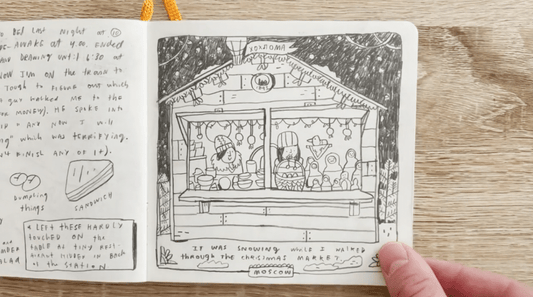 BED LAST NIGHT AT 10
AWAKE AT 4.00. ENDED
DRAWING UNTIL 6:30 AT
NOW I'M ON THE TRAIN TO
TOUGH TO FIGURE OUT WHICH
GUY HELPED ME TO THE
MONEY). HE SPOKE INTO
"AND NOW I WILL
" WHICH WAS TERRIFYING.
FINISH ANY OF IT).
DUMPLING
THINGS
SANDWICH
* LEFT THESE HARDLY
TOUCHED ON THE
TABLE AT TINY REST-
AURANT HIDDEN IN BACK
OF THE STATION
ХОХЛОМА
IT WAS SNOWING WHILE I WALKED
THROUGH THE CHRISTMAS MARKET.
MOSCOW